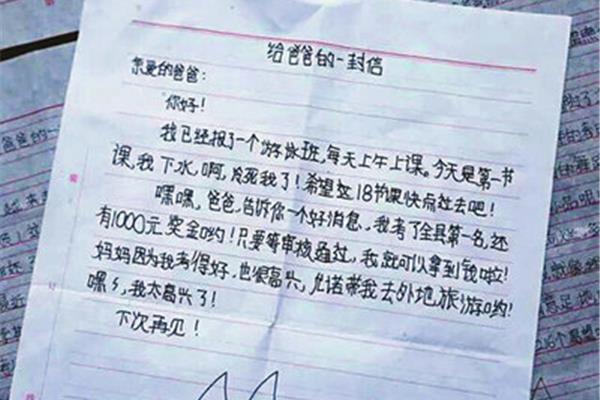 给爸爸的一封信
亲爱的爸爸：
你好！
我已经报了一个游泳班，每天上午上课。今天是第一节
课，我下水，啊，冷死我了！希望这18节课快点过去吧！
嘿嘿，爸爸，告诉你一个好消息，我考了全县第一名，还
有1000元奖金哟！只要等审核通过，我就可以拿到钱啦！
妈妈因为我考得好，也很高兴，允诺带我去外地旅游哟！
嘿嘿，我太高兴了！
下次再见！